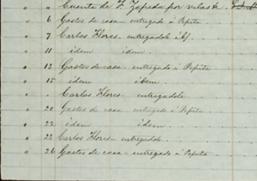 " " Cuenta de F. Zepeda por velas &
" 6 Gastos de casa - entregado á Pepita
" 7 Carlos Flores. entregadole
" 11 idem idem.
" 13 Gastos de casa - entregado á Pepita
" 15 idem idem.
" " Carlos Flores - entregadole
" 20 Gastos de casa - entregado á Pepita
" 22 idem idem
" 23 Carlos Flores - entregadole
" 26 Gastos de casa - entregado á Pepita